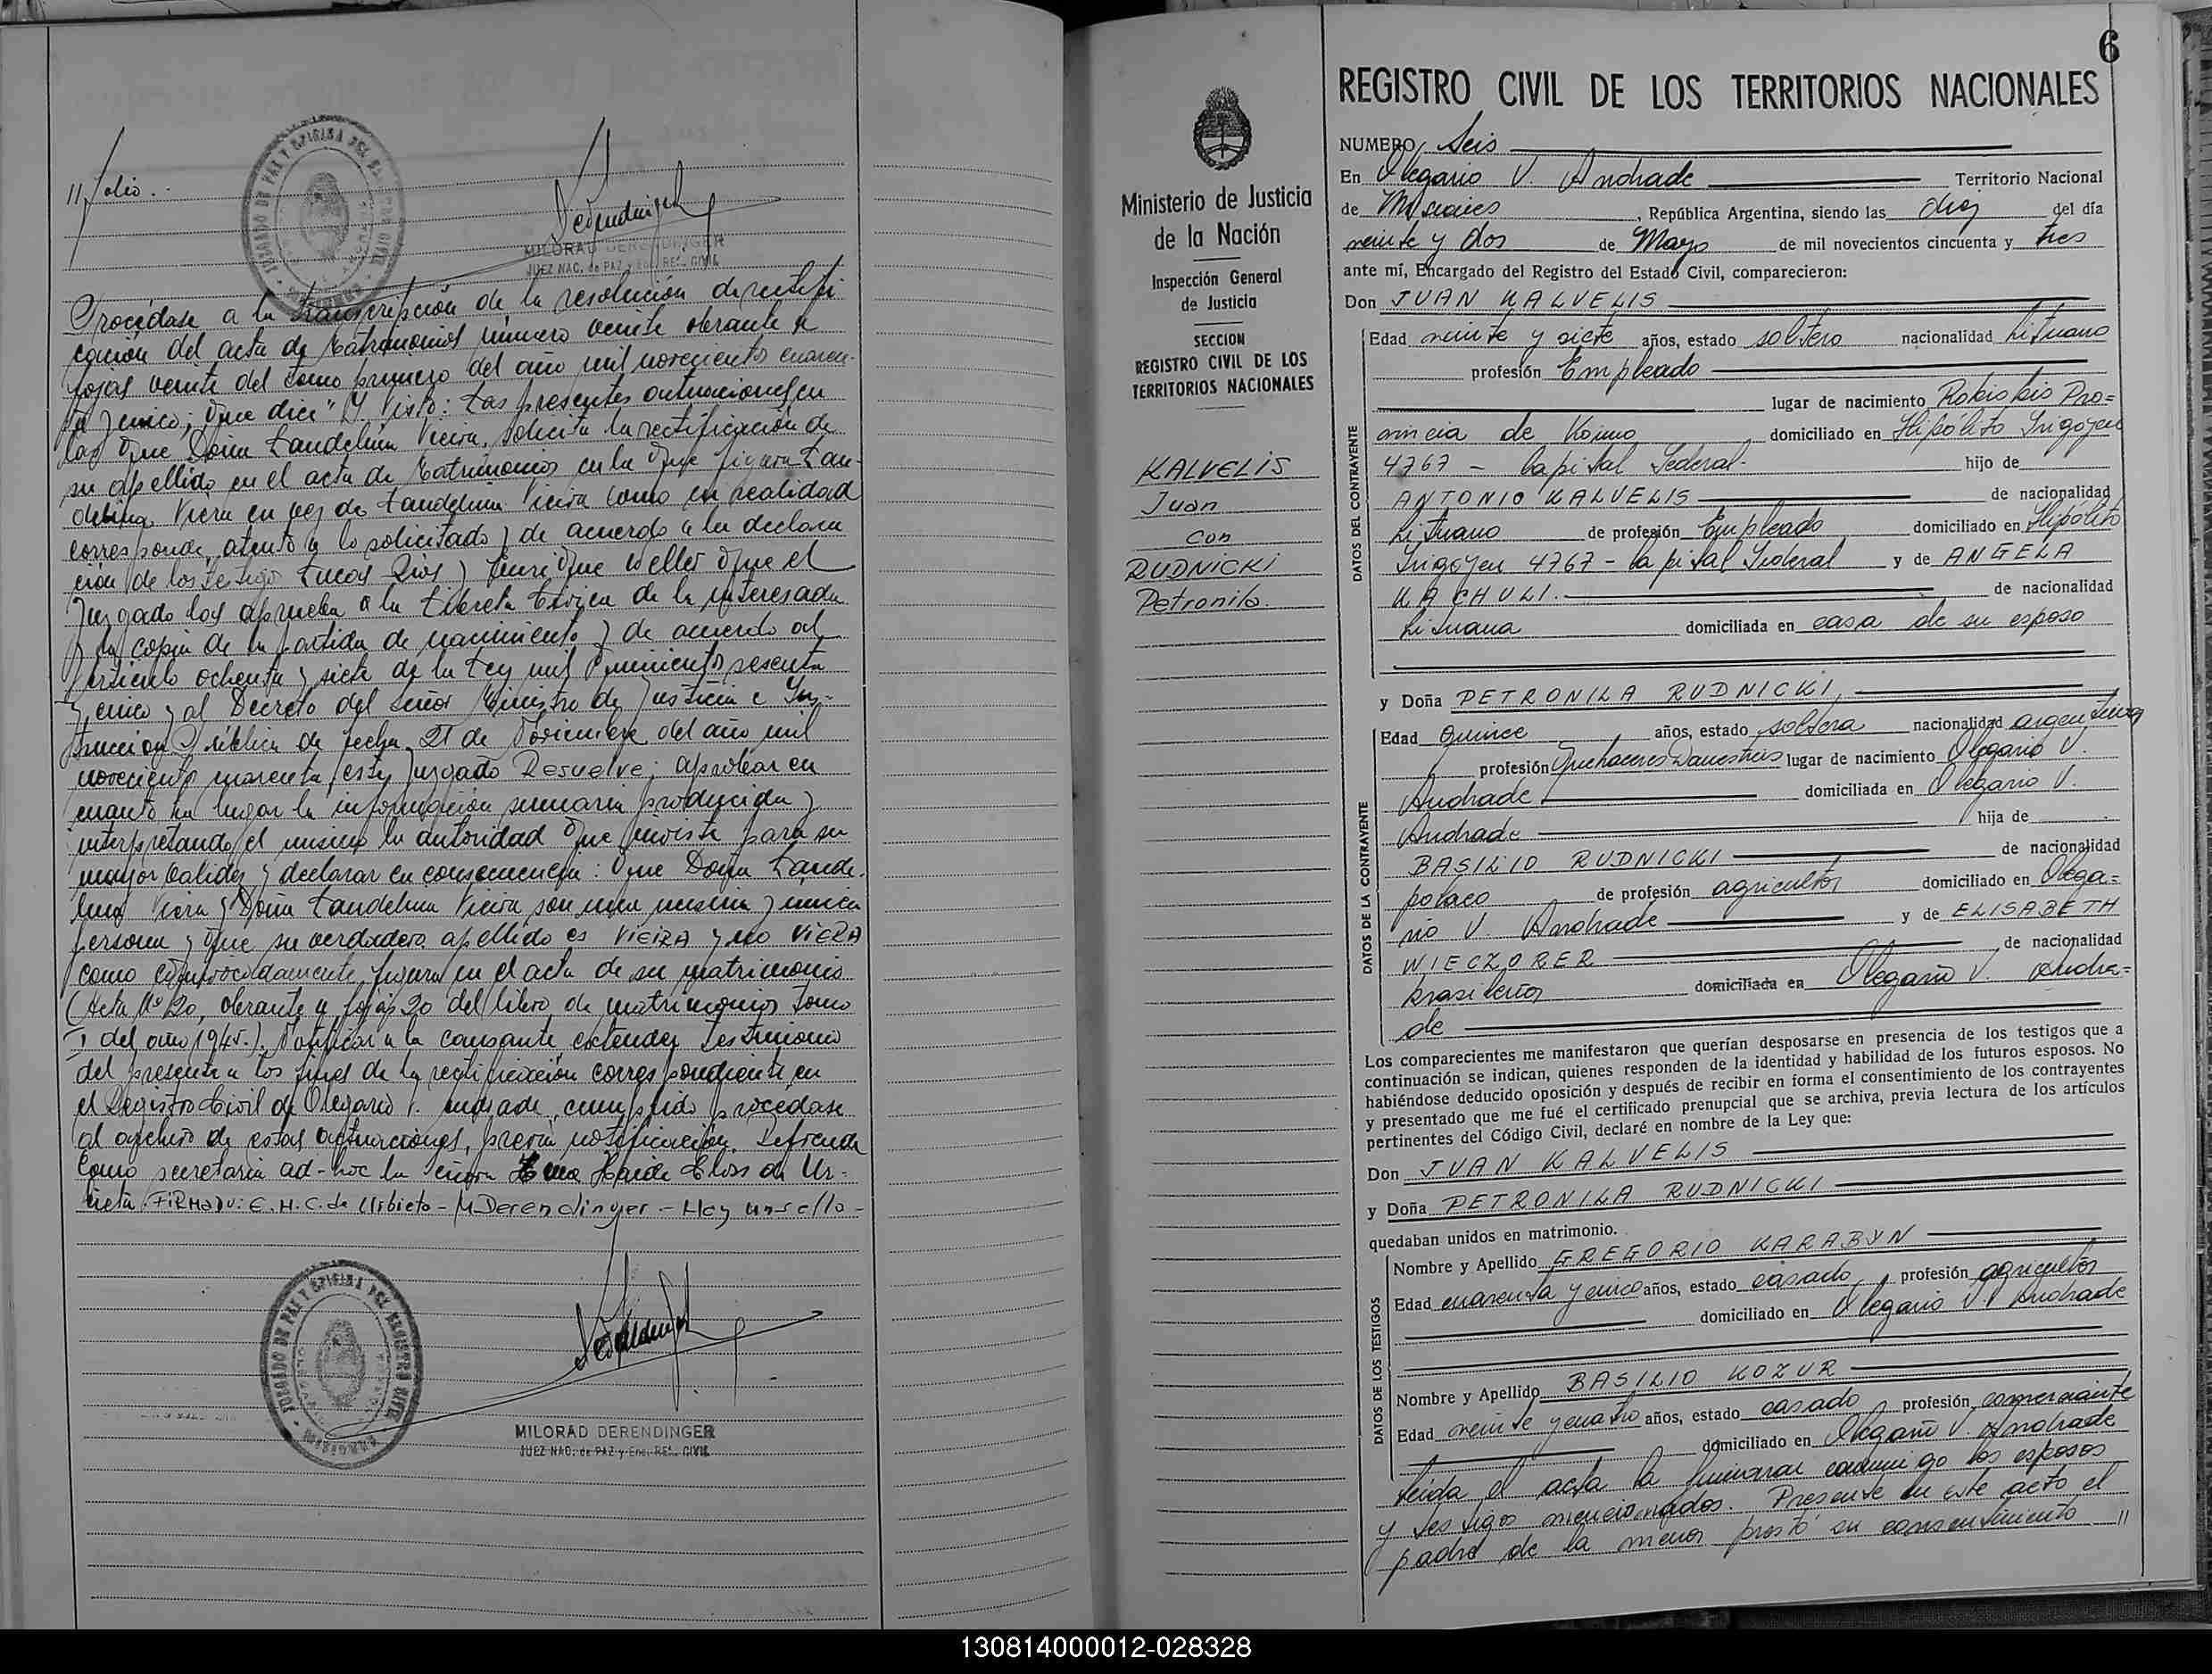 //folio..
JUZGADO DE PAZ Y OFICINA DEL REGISTRO CIVIL
MILORAD DERENDINGER
JUEZ NAC. de PAZ y Enc. REG. CIVIL
Procédase a la transcripción de la resolución de rectifi
cación del acta de Matrimonios número veinte obrante a
fojas veinte del tomo primero del año mil novecientos cuaren-
ta y cinco; que dice "Y Visto: Las presentes actuaciones en
las que Doña Laudelina Vieira, solicita la rectificación de
su apellido en el acta de Matrimonios en la que figura Lau-
delina Viera en vez de Laudelina Vieira como en realidad
corresponde, atento a lo solicitado y de acuerdo a la declara
ción de los testigos Lucas Rios y Enrique Weller que el
Juzgado los aprueba a la Libreta Cívica de la interesada
y la copia de la partida de nacimiento y de acuerdo al
artículo ochenta y siete de la Ley mil quinientos sesenta
y cinco y al Decreto del Señor Ministro de Justicia e Ins-
trucción Pública de fecha 21 de Noviembre del año mil
novecientos cuarenta, este Juzgado Resuelve; aprobar en
cuanto ha lugar la información sumaria producida y
interpretando el mismo la autoridad que inviste para su
mayor validez y declarar en consecuencia: Que Doña Laude-
lina Viera y Doña Laudelina Vieira son una misma y única
persona y que su verdadero apellido es VIEIRA y no VIERA
como equivocadamente figura en el acta de su matrimonio
(Acta Nº 20, obrante a fojas 20 del libro de matrimonios tomo
I del año 1945.). Notificar a la causante extender testimonio
del presente a los fines de la rectificación correspondiente en
el Registro Civil de Olegario V. Andrade, cumplido procédase
al archivo de estas actuaciones, previa notificación. Refrenda
como secretaria ad-hoc la señora Haide Closs de Ur-
bieta. FIRMADO: E. H. C. de Urbieta - M Derendinger - Hay un sello -
JUZGADO DE PAZ Y OFICINA DEL REGISTRO CIVIL
MILORAD DERENDINGER
JUEZ NAC. de PAZ y Enc. REG. CIVIL
6
Ministerio de Justicia
de la Nación
Inspección General
de Justicia
SECCION
REGISTRO CIVIL DE LOS
TERRITORIOS NACIONALES
KALVELIS
Juan
con
RUDNICKI
Petronila.
REGISTRO CIVIL DE LOS TERRITORIOS NACIONALES
NUMERO Seis
En Olegario V. Andrade Territorio Nacional
de Misiones, República Argentina, siendo las diez del día
veinte y dos de Mayo de mil novecientos cincuenta y tres
ante mí, Encargado del Registro del Estado Civil, comparecieron:
Don JUAN KALVELIS
DATOS DEL CONTRAYENTE
Edad veinte y siete años, estado soltero nacionalidad Lituano
profesión Empleado
lugar de nacimiento Rokiskis Pro=
vincia de Kovno domiciliado en Hipólito Irigoyen
4767 - Capital Federal. hijo de
ANTONIO KALVELIS de nacionalidad
Lituano de profesión Empleado domiciliado en Hipólito
Irigoyen 4767 - Capital Federal y de ANGELA
KACHULI. de nacionalidad
Lituana domiciliada en casa de su esposo
y Doña PETRONILA RUDNICKI,
DATOS DE LA CONTRAYENTE
Edad Quince años, estado soltera nacionalidad argentina
profesión Quehaceres Domestricos lugar de nacimiento Olegario V.
Andrade domiciliada en Olegario V.
Andrade hija de
BASILIO RUDNICKI de nacionalidad
polaco de profesión agricultor domiciliado en Olega=
rio V. Andrade y de ELISABETH
WIECZORER de nacionalidad
brasileña domiciliada en Olegario V. Andra=
de
Los comparecientes me manifestaron que querían desposarse en presencia de los testigos que a
continuación se indican, quienes responden de la identidad y habilidad de los futuros esposos. No
habiéndose deducido oposición y después de recibir en forma el consentimiento de los contrayentes
y presentado que me fué el certificado prenupcial que se archiva, previa lectura de los artículos
pertinentes del Código Civil, declaré en nombre de la Ley que:
Don JUAN KALVELIS
y Doña PETRONILA RUDNICKI
quedaban unidos en matrimonio.
DATOS DE LOS TESTIGOS
Nombre y Apellido GREGORIO KARABYN
Edad cuarenta y cinco años, estado casado, profesión agricultor
domiciliado en Olegario V. Andrade
Nombre y Apellido BASILIO KOZUR
Edad veinte y cuatro años, estado casado, profesión comerciante
domiciliado en Olegario V. Andrade
Leida el acta la firmaron conmigo los esposos
y testigos mencionados. Presente en este acto el
padre de la menor prestó su consentimiento //
130814000012-028328